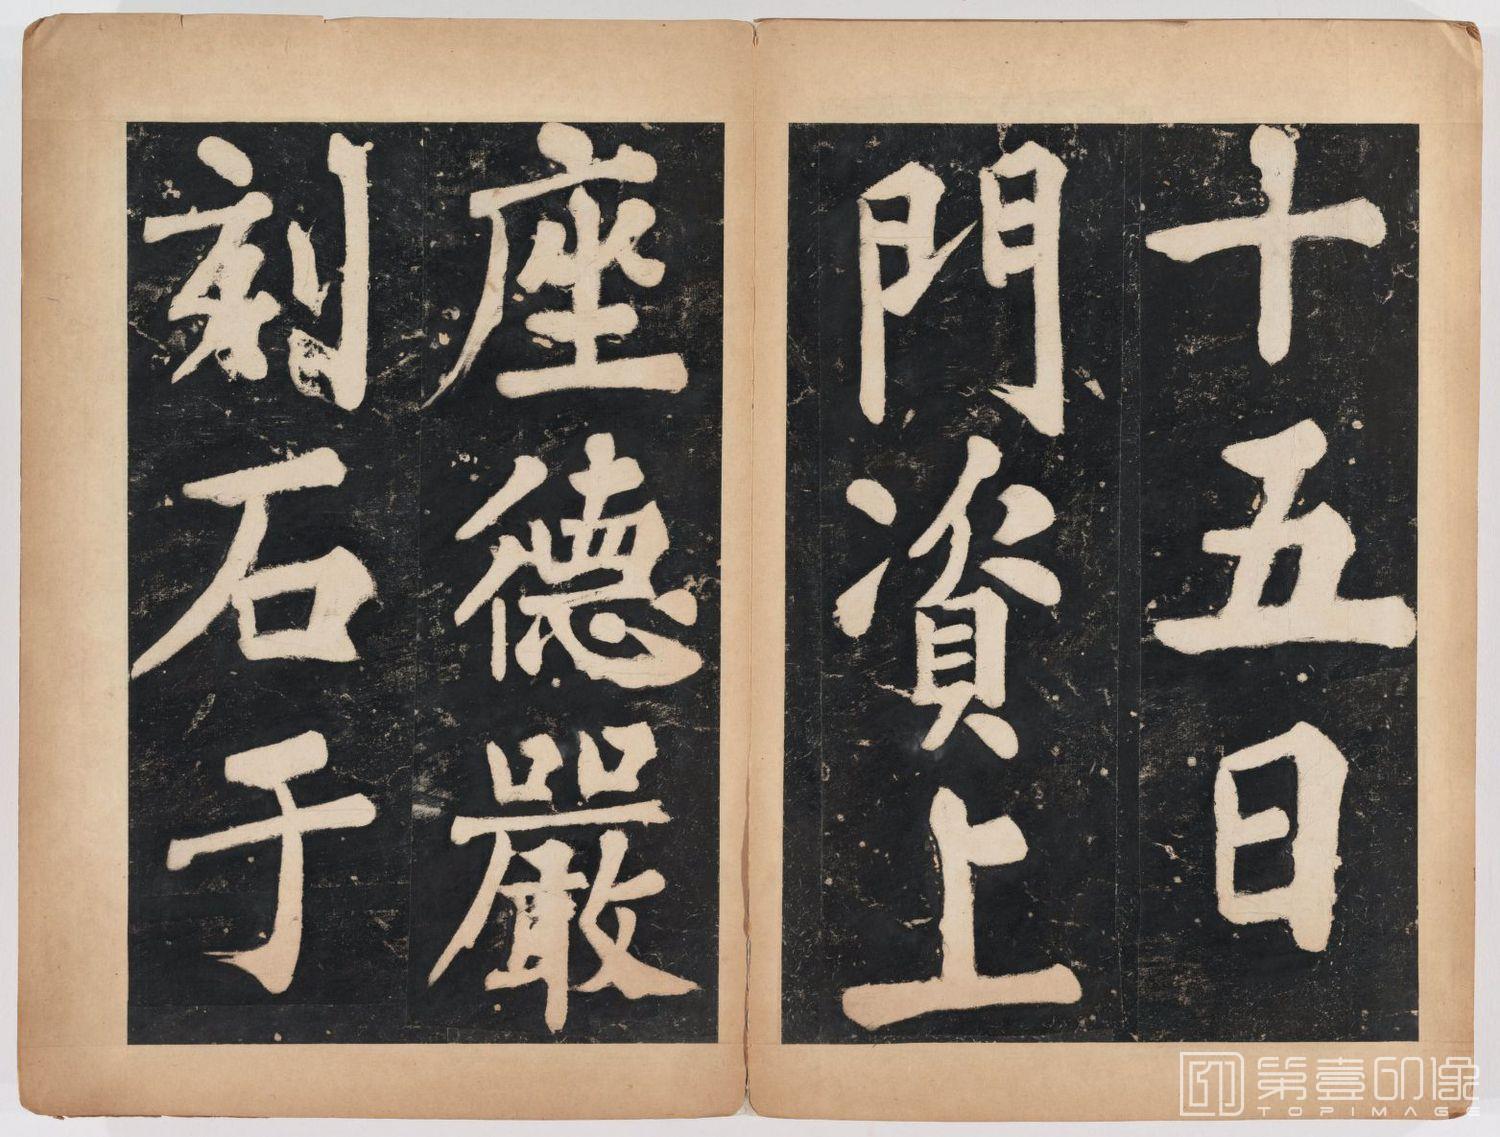 十五日
門資上
座德嚴
刻石于
第壹印像
TOPIMAGE